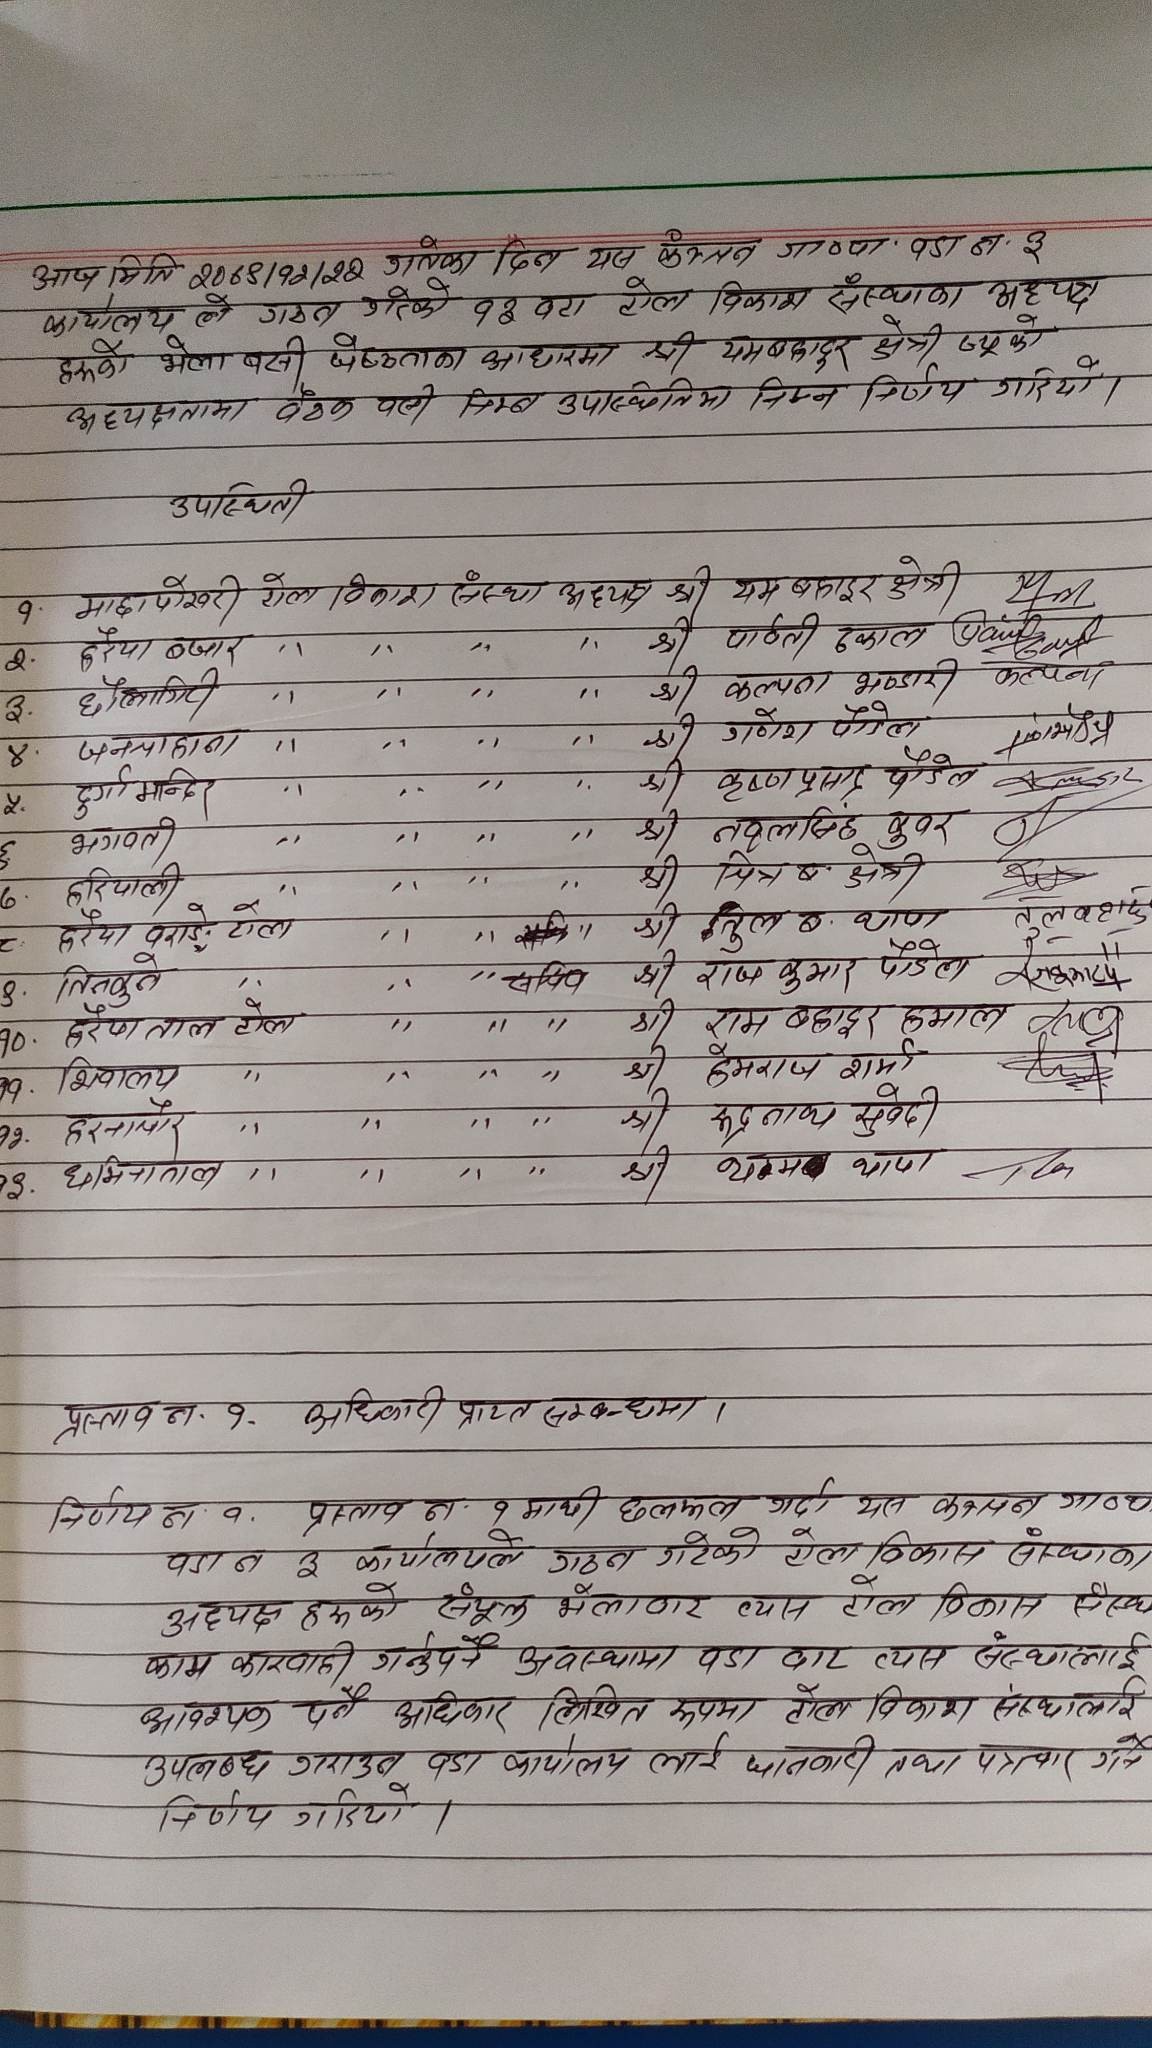 आज मिति २०७९/१२/२२ गतेका दिन यस कञ्चन गा०पा. वडा न. ३
कार्यालय ले गठन गरेको १३ वटा टोल विकास संस्थाका अध्यक्ष
हरुको भेला बसी जेष्ठताका आधारमा श्री यमबहादुर क्षेत्री ज्यूको
अध्यक्षतामा वैठक वसी निम्न उपस्थितिमा निम्न निर्णय गरियो।
उपस्थिती
१. माझापोखरी टोल विकाश संस्था अध्यक्ष श्री यम बहादुर क्षेत्री
२. हरैया बजार " " " " श्री पार्वती ढकाल
३. धौलागिरी " " " " श्री कल्पना भण्डारी कल्पना
४. " " " " श्री गणेश पौडेल
५. दुर्गा मन्दिर " " " " श्री कृष्ण प्रसाद पौडेल
६ भगवती " " " " श्री नवलसिंह कुवर
७. हरियाली " " " " श्री मित्र ब. क्षेत्री
८ हरैया टोल " " " श्री तुल ब. थापा
९. तिनकुने " " " सचिव श्री राज कुमार पौडेल
१०. हरैया ताल टोल " " " " श्री राम बहादुर हमाल
११. शिवालय " " " " श्री हेमराज शर्मा
१२. " " " " श्री रुद्रनाथ सुवेदी
१३. " " " " श्री थापा
प्रस्ताव न. १. अधिकारी प्राप्त सम्बन्धमा।
निर्णय न. १. प्रस्ताव न. १ माथी छलफल गर्दा यस कञ्चन गा०पा
वडा न ३ कार्यालयले गठन गरेको टोल विकास संस्थाका
अध्यक्ष हरुको भेलावाट त्यस टोल विकास संस्था
काम कारवाही गर्नुपर्ने अवस्थामा वडा वाट त्यस संस्थालाई
आवश्यक पर्ने अधिकार लिखित रुपमा टोल विकाश संस्थालाई
उपलब्ध गराउन वडा कार्यालय लाई जानकारी तथा पत्राचार गर्ने
निर्णय गरियो।